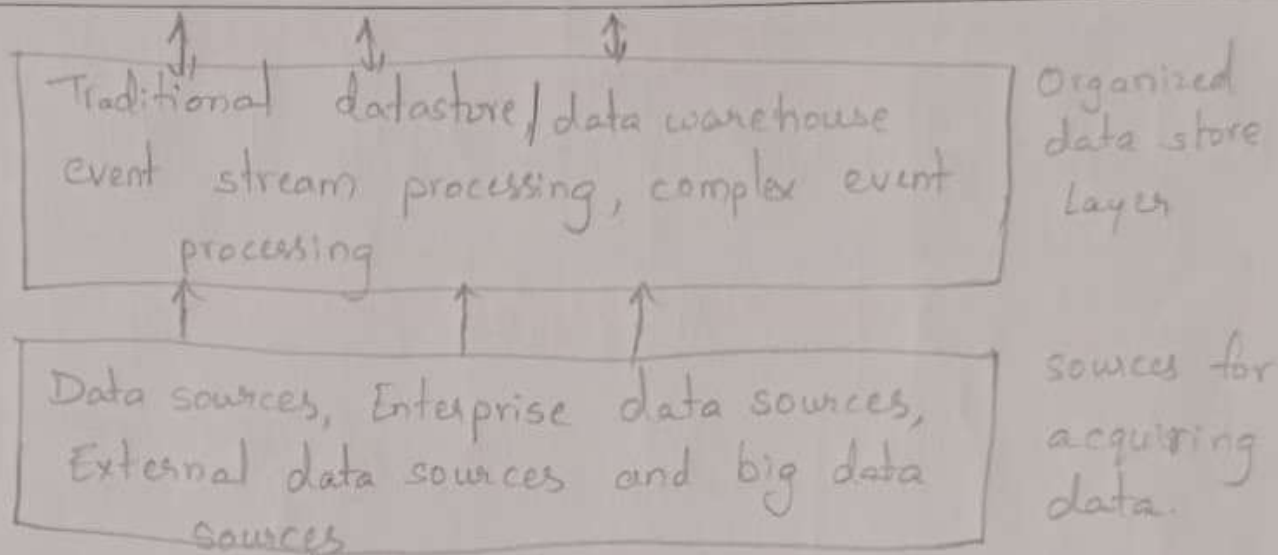 Traditional datastore/data warehouse
event stream processing, complex event
processing
Organized
data store
Layer
Data sources, Enterprise data sources,
External data sources and big data
sources
sources for
acquiring
data.